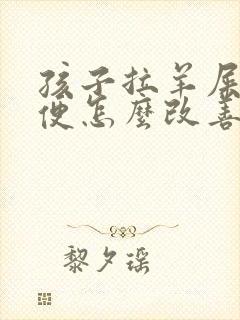 孩子拉羊屎
便怎麼改善
黎夕瑶